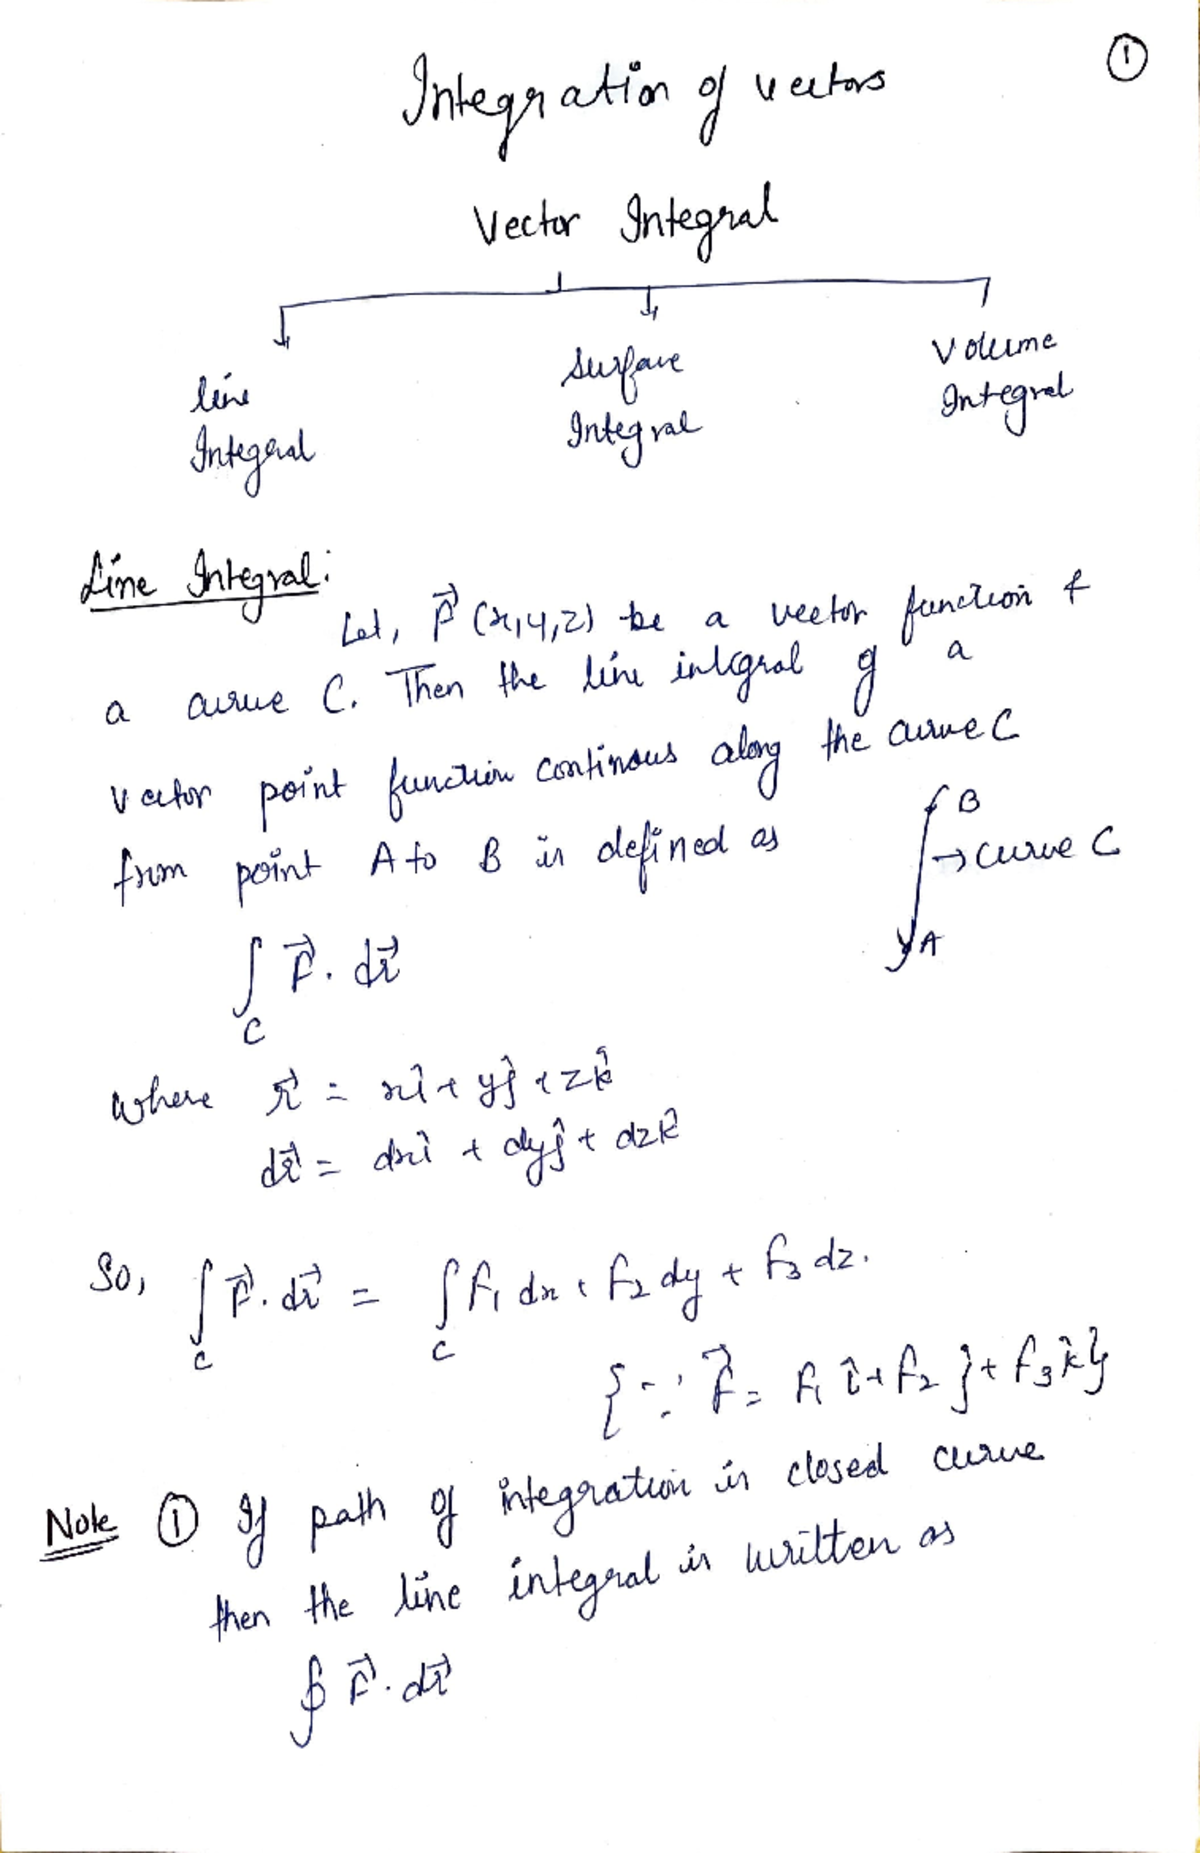 ①
Integration of vectors
Vector Integral
line Integral
Surface Integral
Volume Integral
Line Integral:
Let, F⃗ (x,y,z) be a vector function &
a curve C. Then the line integral of a
vector point function continous along the curve C
from point A to B is defined as
B
→ curve C
A
∫_C F⃗. dr⃗
where r⃗ = xî + yĵ + zk̂
dr⃗ = dxî + dyĵ + dzk̂
So, ∫_C F⃗. dr⃗ = ∫_C f₁ dx + f₂ dy + f₃ dz.
{∵ F⃗ = f₁ î + f₂ ĵ + f₃ k̂}
Note ① If path of integration is closed curve
then the line integral is written as
∮ F⃗. dr⃗